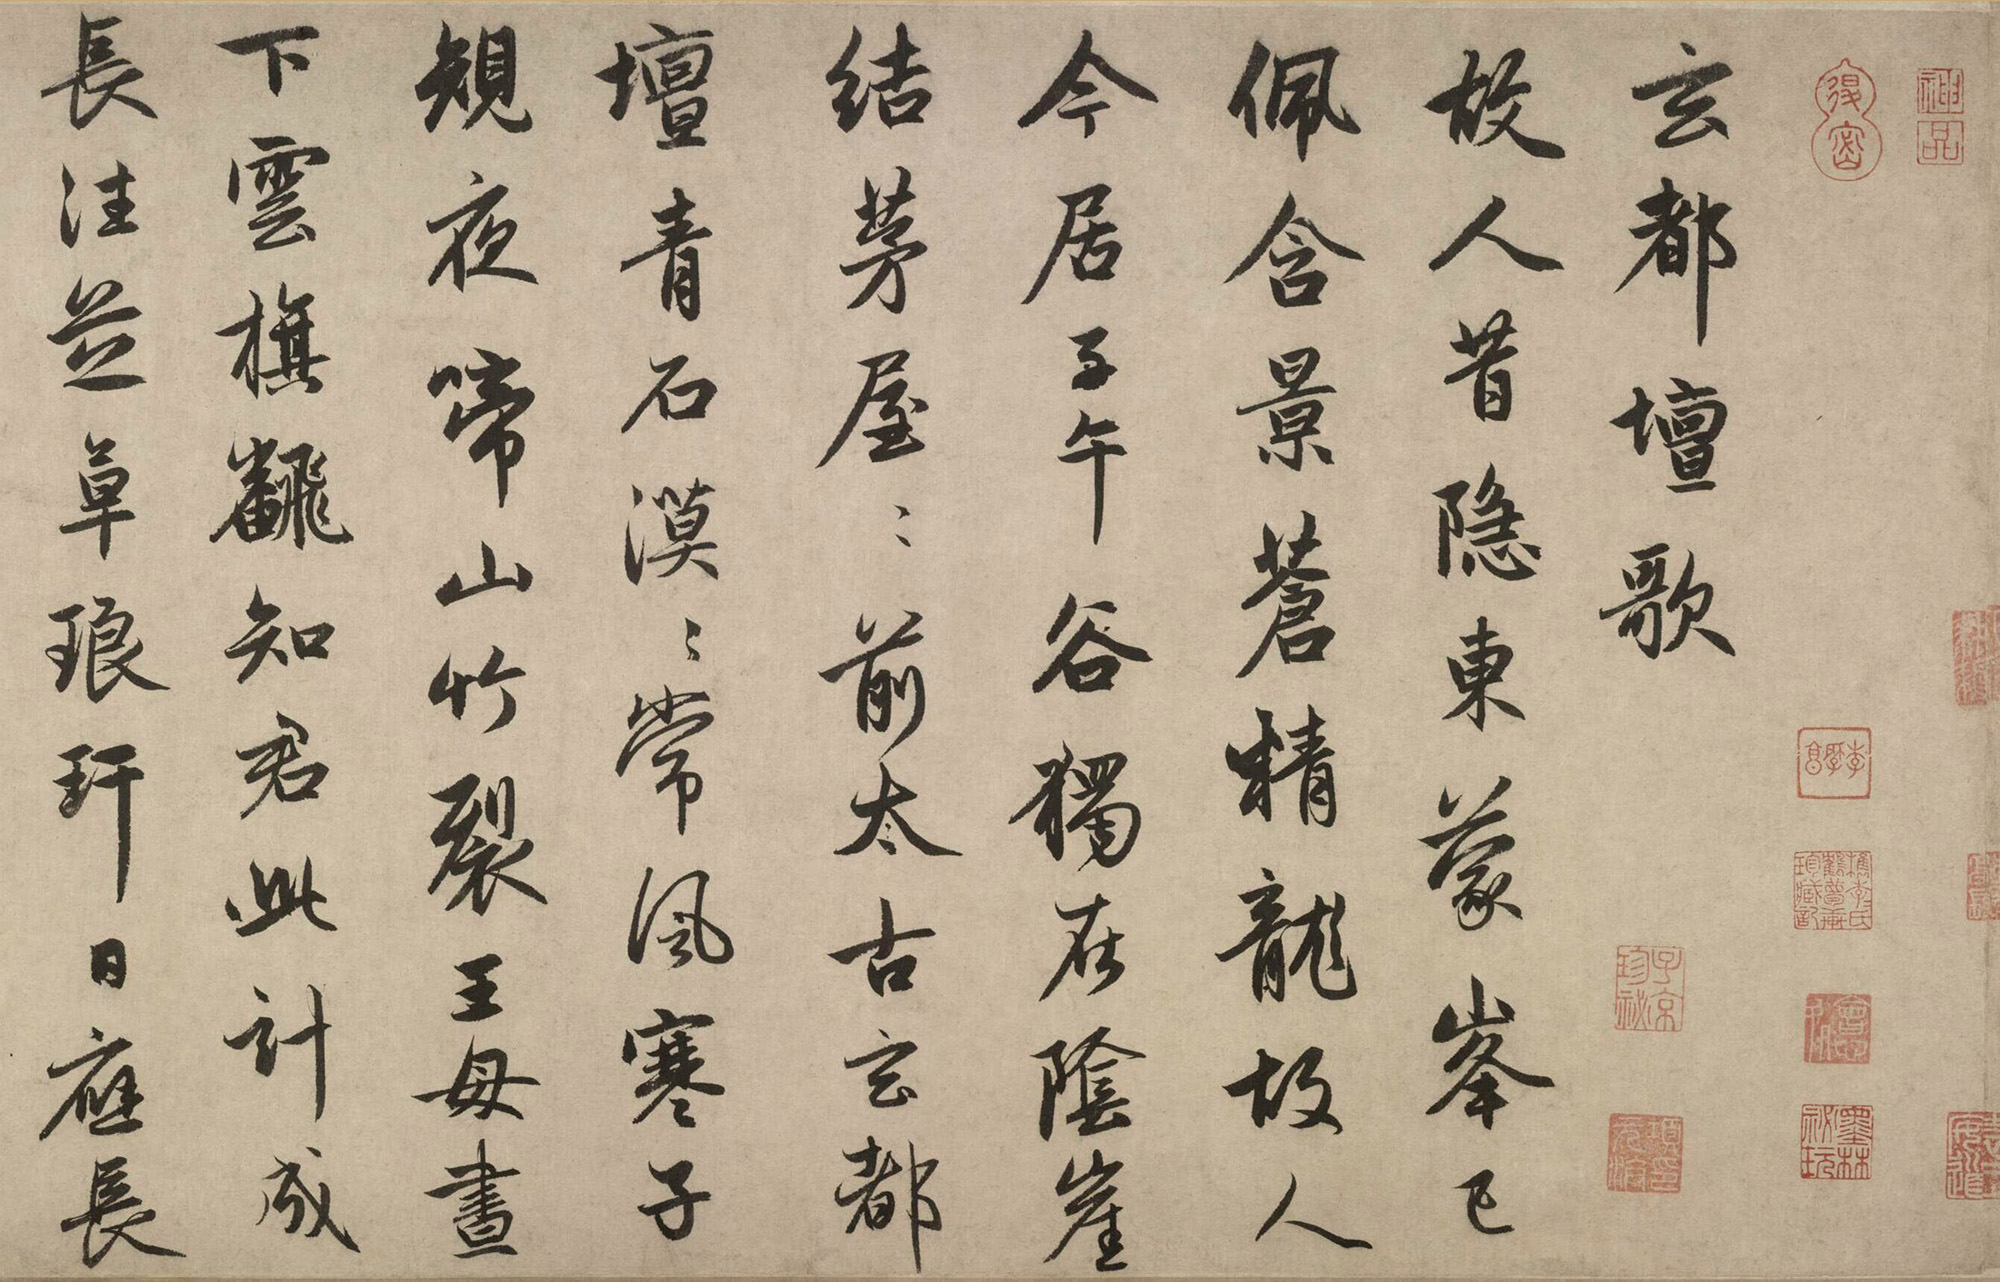 神品
墨林秘玩
子京珍秘
玄都壇歌
故人昔隐東蒙峯已
佩含景蒼精龍故人
今居子午谷獨在陰崖
結茅屋〻前太古玄都
壇青石漠〻常風寒子
規夜啼山竹裂王母晝
下雲旗飜知君此計成
長往芝草琅玕日應長